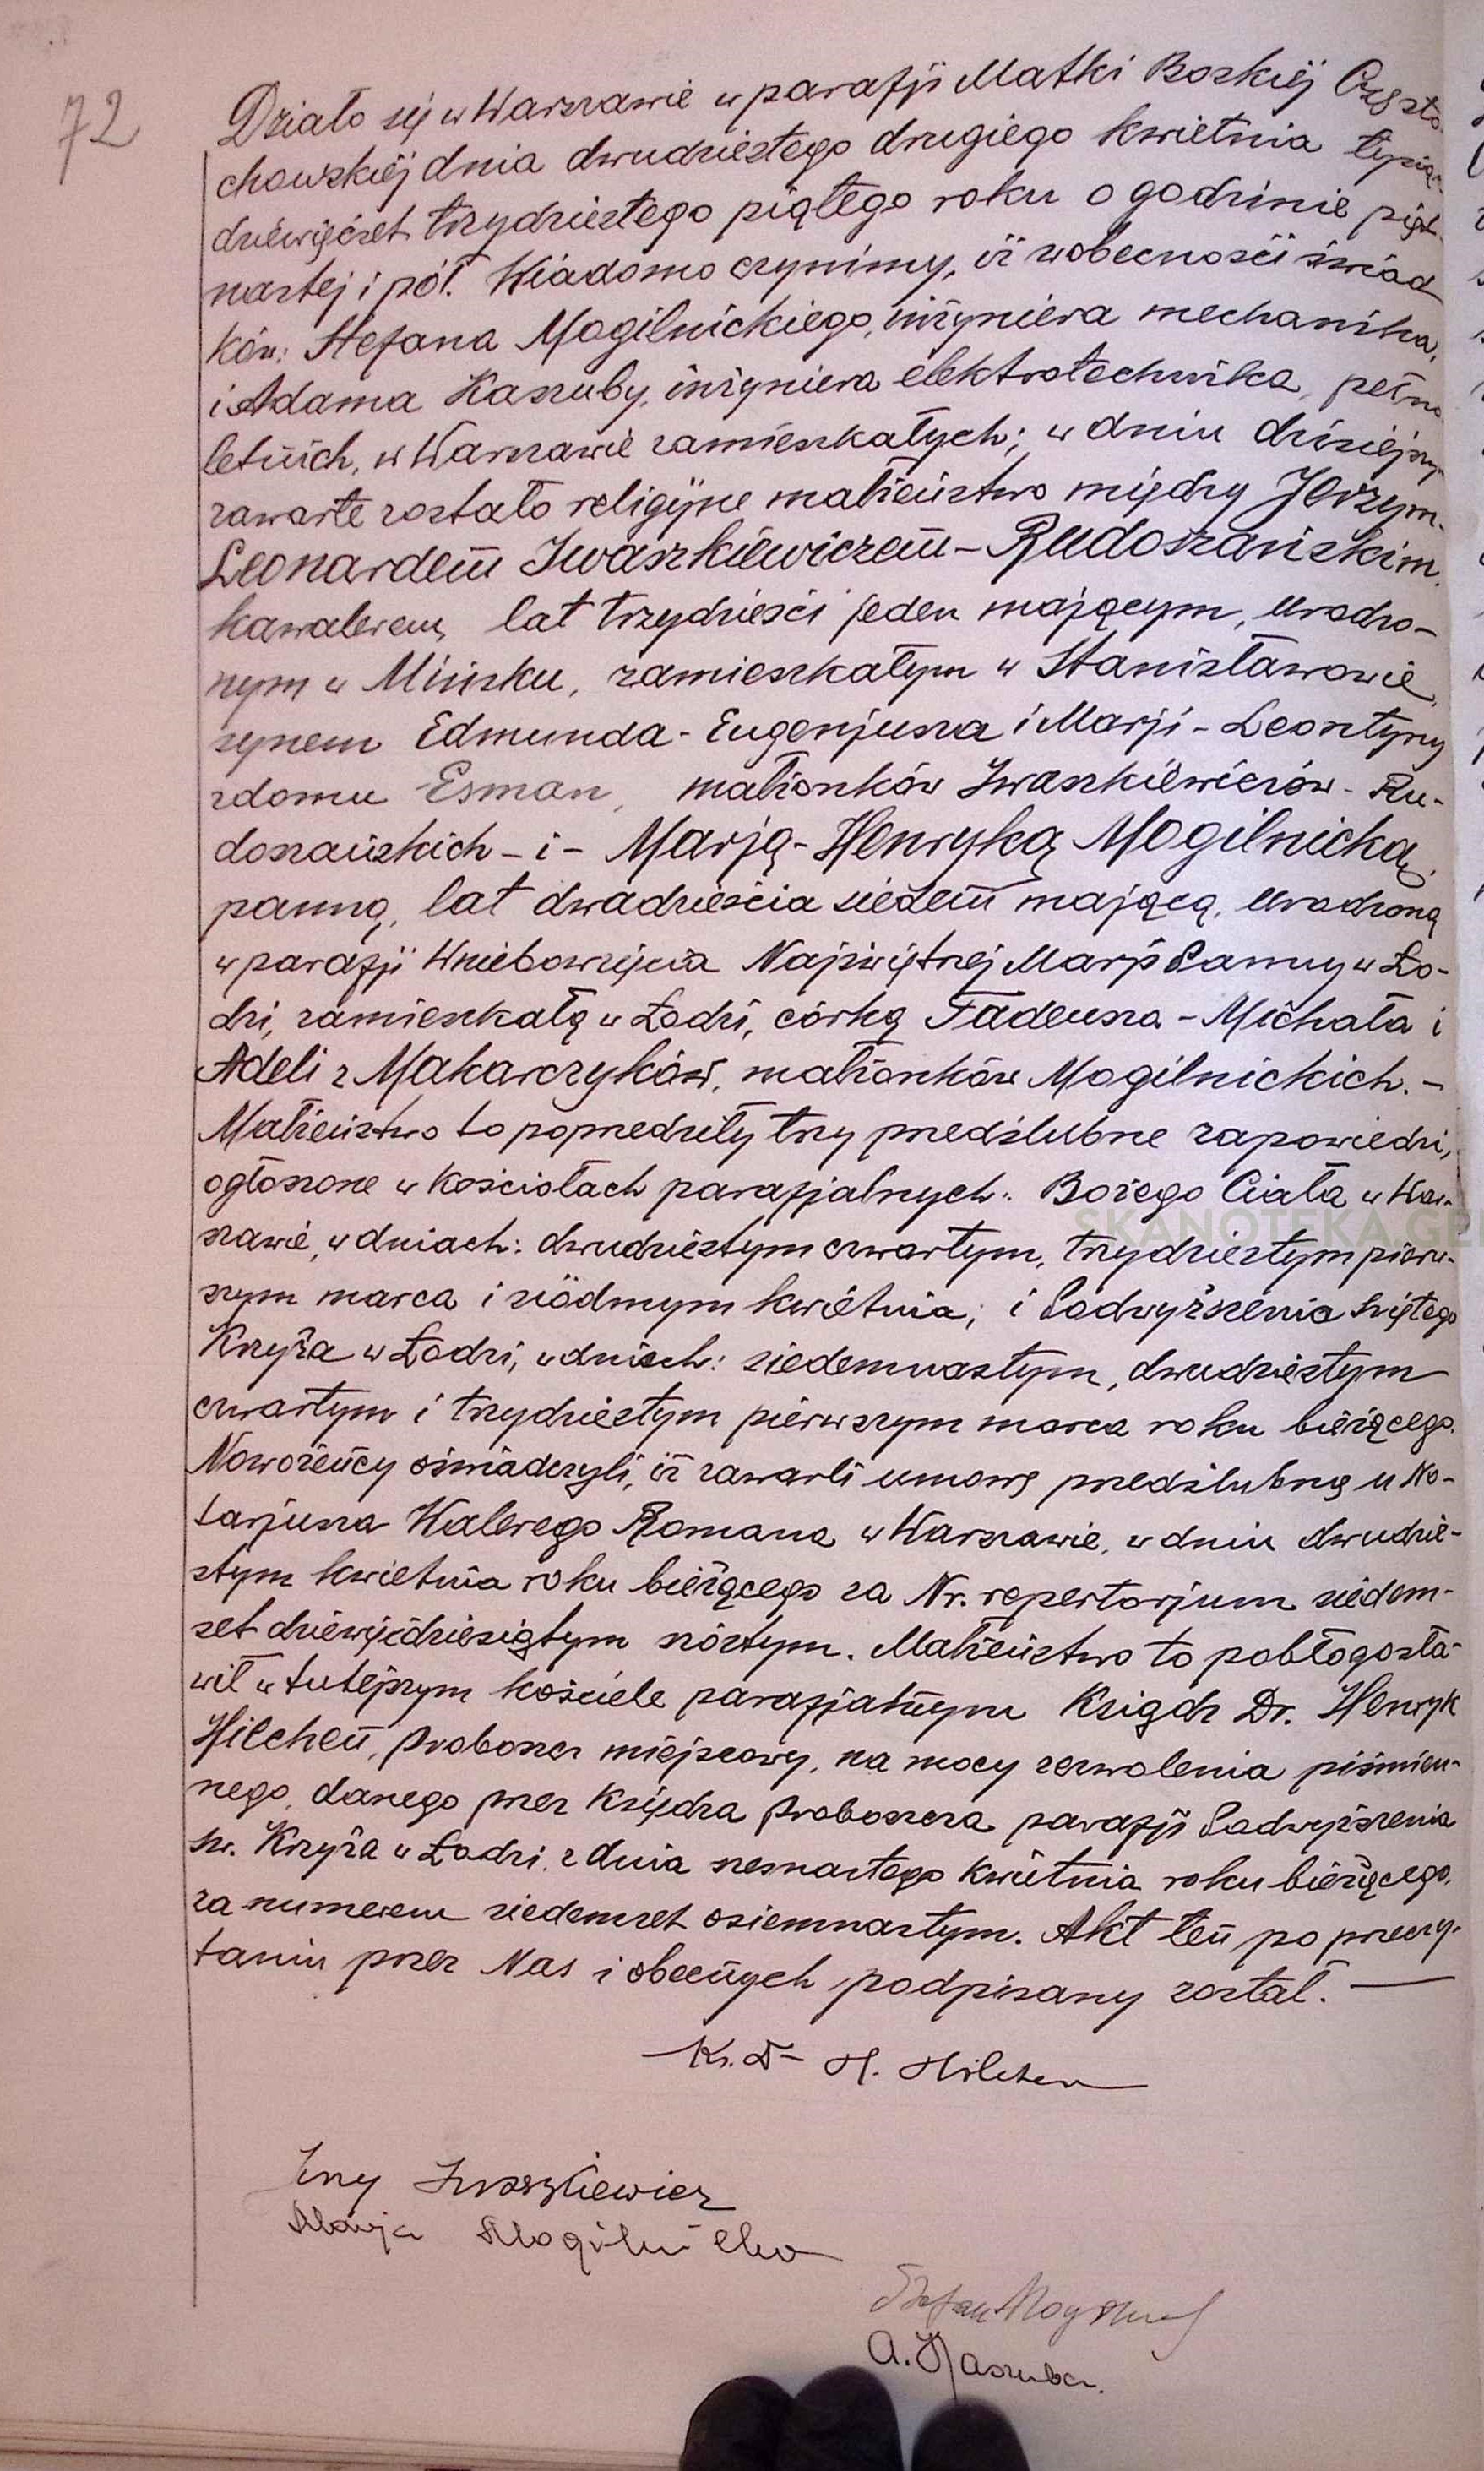 72
Działo się w Warszawie w parafji Matki Boskiéj Często-
chowskiéj dnia dwudziestego drugiego kwietnia tysiąc
dziewięćset trzydziestego piątego roku o godzinie pięt-
nastej i pół. Wiadomo czynimy, iż wobecności świad
ków: Stefana Mogilnickiego, inżyniera mechanika,
i Adama Kaszuby, inżyniera elektrotechnika, pełno
letnich, w Warszawie zamieszkałych; w dniu dzisiejszym
zawarte zostało religijne małżeństwo między Jerzym-
Leonardem Iwaszkiewiczem-Rudoszańskim,
kawalerem, lat trzydzieści jeden mającym, urodzo-
nym w Mińsku, zamieszkałym w Stanisławowie,
synem Edmunda-Eugenjusza i Marji-Leontyny
zdomu Esman, małżonków Iwaszkiewiczów-Ru-
doszańskich - i - Marją-Henryką Mogilnicką,
panną, lat dwadzieścia siedem mającą, urodzoną
w parafji Wniebowzięcia Najświętszej Marji Panny w Ło-
dzi, zamieszkałą w Łodzi, córką Tadeusza-Michała i
Adeli z Makarczyków, małżonków Mogilnickich. -
Małżeństwo to poprzedziły trzy przedślubne zapowiedzi,
ogłoszone w kościołach parafjalnych: Bożego Ciała w War-
szawie, w dniach: dwudziestym czwartym, trzydziestym pierw-
szym marca i siódmym kwietnia; i Podwyższenia Świętego
Krzyża w Łodzi, w dniach: siedemnastym, dwudziestym
czwartym i trzydziestym pierwszym marca roku bieżącego.
Nowożeńcy oświadczyli, iż zawarli umowę przedślubną u No-
tarjusza Walerego Romana w Warszawie, w dniu dwudzie-
stym kwietnia roku bieżącego za Nr. repertorjum siedem-
set dziewięćdziesiątym szóstym. Małżeństwo to pobłogosła-
wił w tutejszym kościele parafjalnym Ksiądz Dr. Henryk
Hilchen, Proboszcz miejscowy, na mocy zezwolenia piśmien-
nego, danego przez Księdza Proboszcza parafji Podwyższenia
św. Krzyża w Łodzi, z dnia szesnastego kwietnia roku bieżącego,
za numerem siedemset osiemnastym. Akt ten po przeczy-
taniu przez Nas i obecnych podpisany został. —
Ks. Dr H. Hilchen
Jerzy Iwaszkiewicz
Marja Mogilnicka
Stefan Mogilnicki
A. Kaszuba.
SKANOTEKA.GE